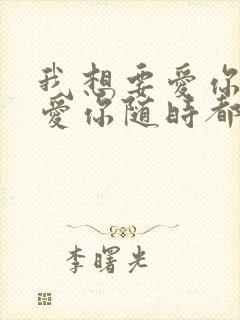 我想要愛你
愛你隨時都
李曙光